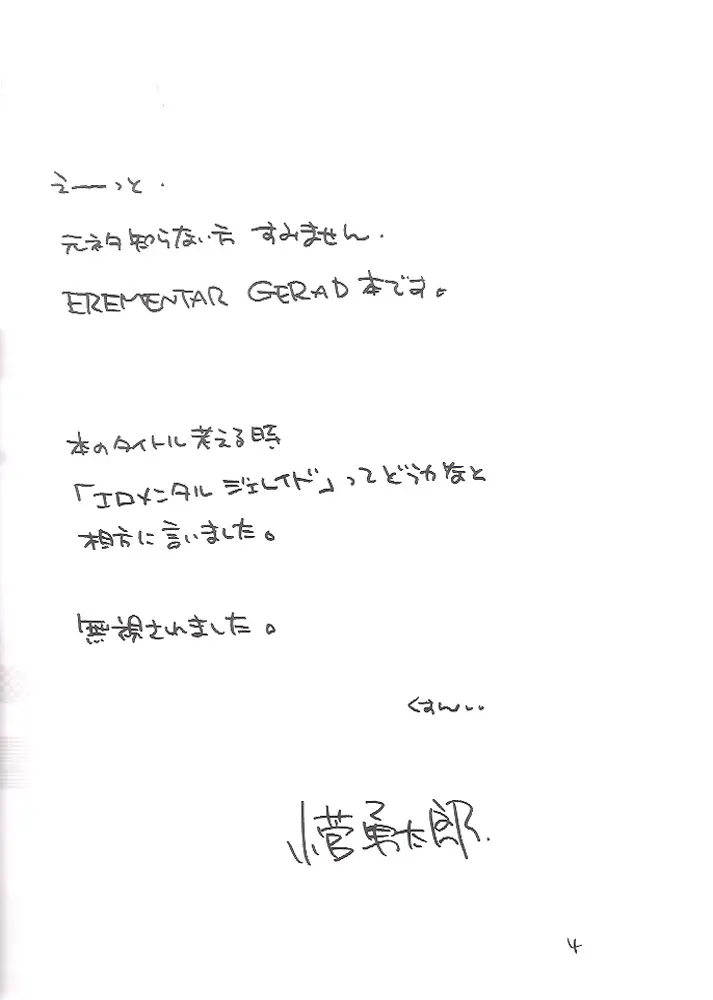 えーーっと.
元ネタ知らない方 すみません.
EREMENTAR GERAD 本です。
本のタイトル考える時
「エロメンタル ジェレイド」ってどうかなと
相方に言いました。
無視されました。
くすん..
小菅勇太郎.
4